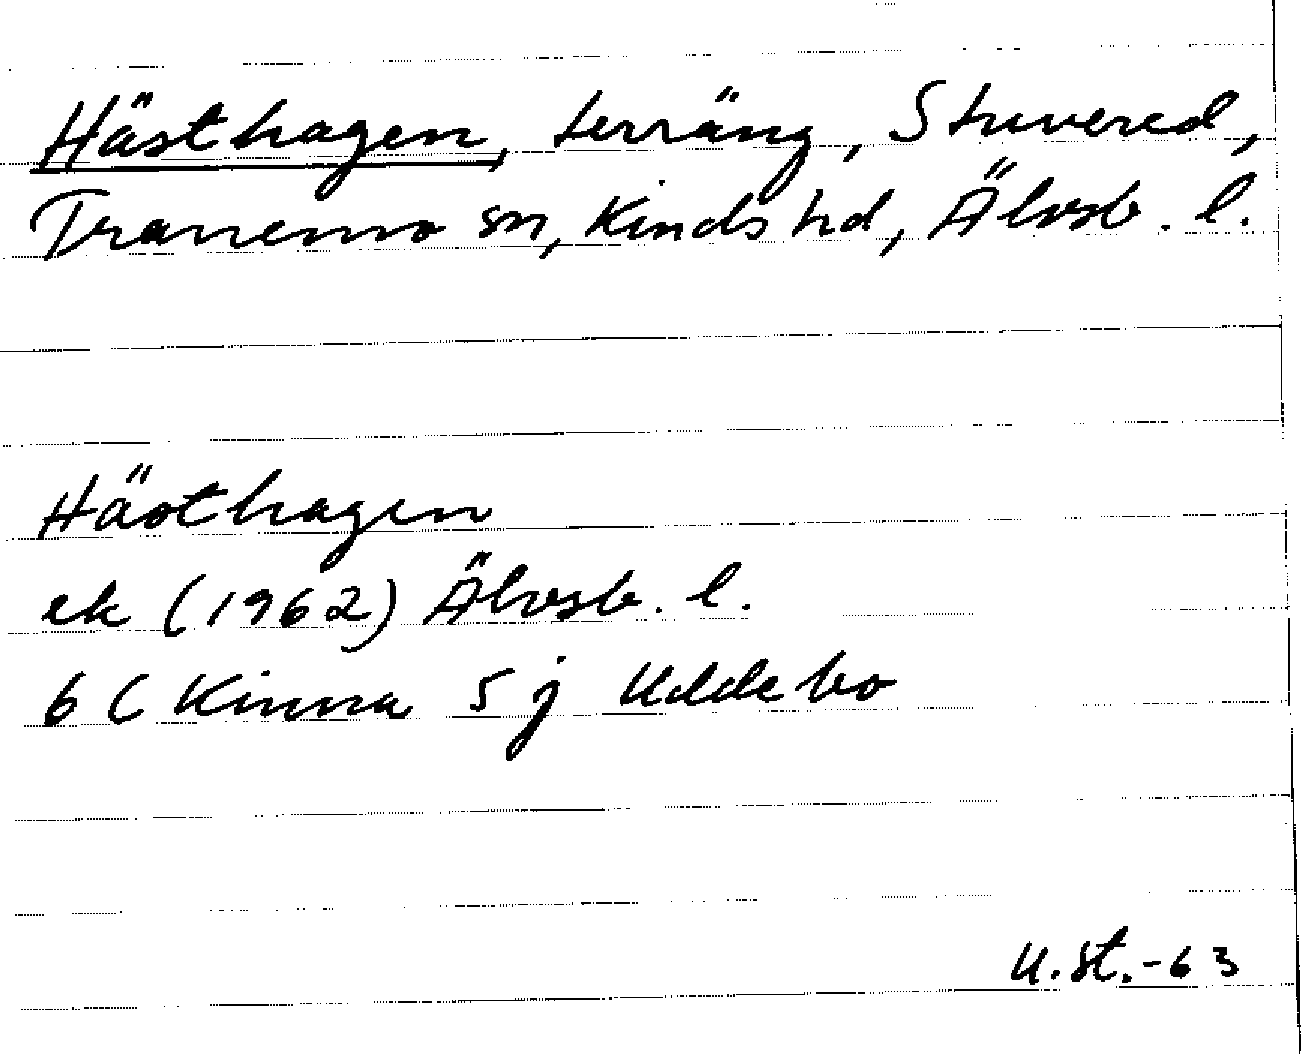 Hästhagen, terräng, Struvered,
Tranemo sn, Kinds hd, Älvsb. l.
Hästhagen
ek (1962) Älvsb. l.
6 C Kinna 5 j Uddebo
U.St.-63